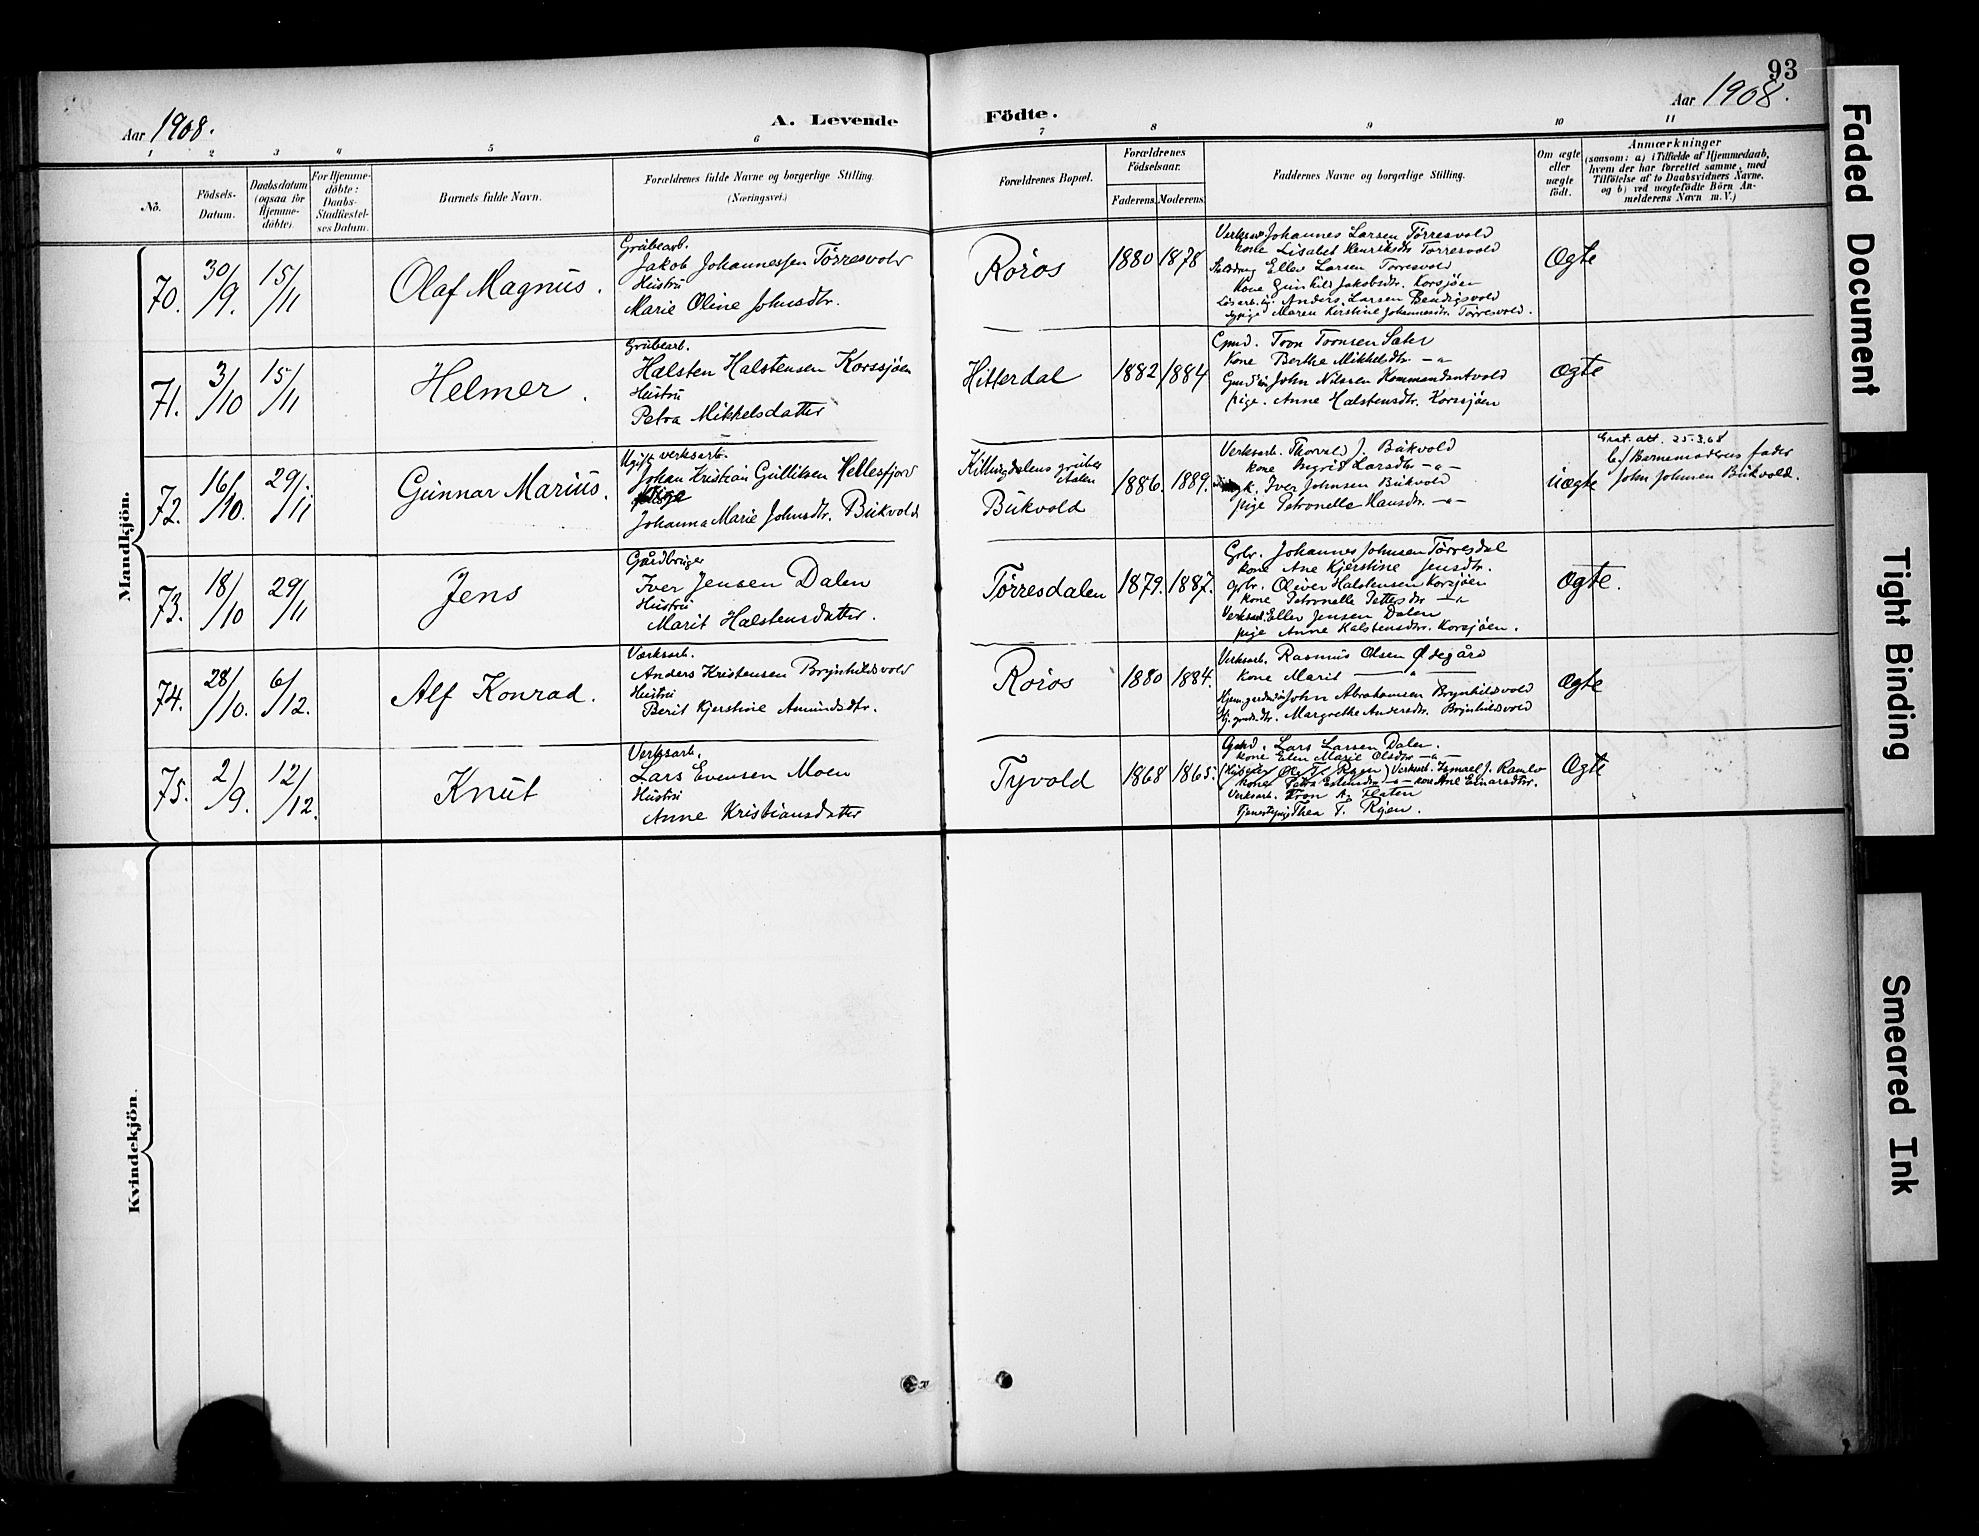 93
Aar 1908.
A. Levende Födte.
Aar 1908.
1 2 3 4 5 6 7 8 9 10 11
No.
Födsels-Datum.
Daabsdatum (ogsaa for Hjemme-döbte).
For Hjemme-döbte: Daabs-Stadfæstel-ses Datum.
Barnets fulde Navn.
Forældrenes fulde Navne og borgerlige Stilling. (Næringsvei.)
Forældrenes Bopæl.
Forældrenes Födselsaar.
Faderens. Moderens.
Faddernes Navne og borgerlige Stilling.
Om ægte eller uægte födt.
Anmærkninger
(saasom: a) i Tilfælde af Hjemmedaab, hvem der har forrettet samme, med Tilföielse af to Daabsvidners Navne, og b) ved uægtefödte Börn Anmelderens Navn m. V.)
Mandkjön.
70. 30/9. 15/11 Olaf Magnus.
Grubearb.
Jakob Johannessen Tørresvold
Hustru
Marie Oline Johnsdtr.
Røros 1880 1878
Johannes Larsen Tørresvold
Kone Lisabet Henriksdtr Tørresvold
Ellev Larsen Tørresvold
Kone Gunhild Jakobsdtr. Korsjøen
Anders Larsen Bendigsvold
pige Maren Kirstine Johannesdtr. Tørresvold.
Ægte
71. 3/10 15/11 Helmer.
Grubearb.
Halsten Halstensen Korssjøen
Hustru
Petra Mikkelsdatter
Hitterdal 1882 1884
Gmd. Tron Tronsen Sæter
Kone Berthe Mikkelsdtr. —"—
John Nilssen Kommandantvold
pige. Anne Halstensdtr. Korssjøen
Ægte
72. 16/10. 29/11 Gunnar Marius.
Ugift verksarb.
Johan Kristian Gulliksen Hellesfjord
Pige
Johanna Marie Johnsdtr. Bukvold
Killingdalens gruber Aalen
Bukvold
1886. 1889.
Verksarb. Thorvald J. Bukvold
Kone Ingrid Larsdtr —"—
Iver Johnsen Bukvold
pige Petronelle Hansdtr. —"—
Uægte
25-3.68
b./ Barnemoderens fader
John Johnsen Bukvold.
73. 18/10 29/11 Jens
Gårdbruger
Iver Jensen Dalen
Hustru
Marit Halstensdatter.
Tørresdalen 1879. 1887.
Grbr. Johannes Johnsen Tørresdal
Kone Ane Kjerstine Jensdtr.
grbr. Oliver Halstensen Korsjøen
Kone Petronelle Pettersdtr —"—
Verksarb. Ellev Jensen Dalen
pige Anne Halstensdtr. Korsjøen.
Ægte.
74. 28/10. 6/12. Alf Konrad.
Værksarb.
Anders Kristensen Brynhildsvold
Hustru
Berit Kjerstine Amundsdtr.
Røros 1880 1884.
Verksarb. Rasmus Olsen Ødegård
Kone Marit —"—
John Abrahamsen Brynhildsvold
Margrethe Andersdtr. Brynhildsvold
Ægte
75. 2/9. 12/12. Knut
Verksarb.
Lars Evensen Moen
Hustru
Anne Kristiansdatter
Tyvold 1868 1865.
Gmd. Lars Larsen Dalen.
Kone Elen Marie Olsdtr —"—
Ole T. Ryen) Verksarb. Ismael J. Ramlo
Kone Petra Estensdtr —"— Kone Ane Einarsdtr.
Verksarb. Tron A. Flaten
Tjenestepige Thea T. Ryen.
Ægte
Kvindekjön.
Faded Document
Tight Binding
Smeared Ink